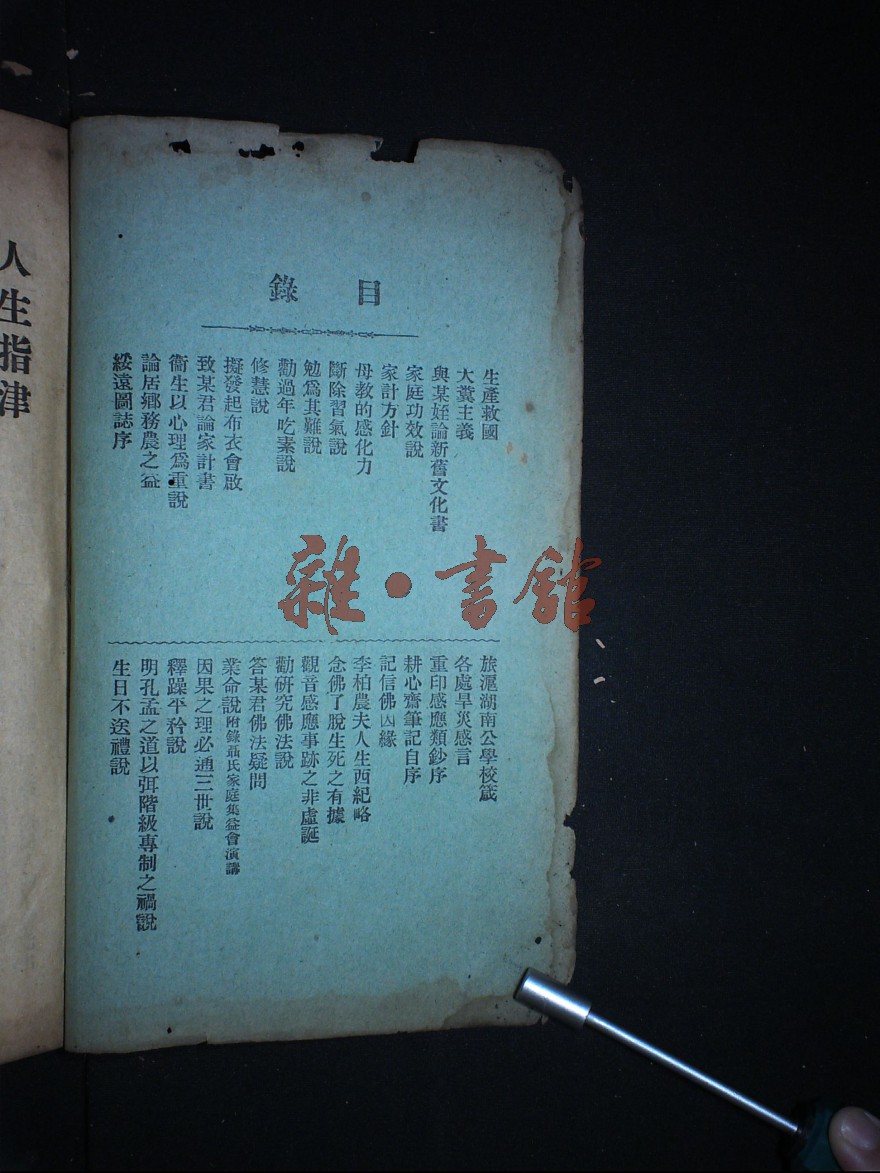 目錄
生產救國
大糞主義
與某姪論新舊文化書
家庭功效說
家計方針
母教的感化力
斷除習氣說
勉爲其難說
勸過年吃素說
修慧說
擬發起布衣會啟
致某君論家計書
衞生以心理爲重說
論居鄉務農之益
綏遠圖誌序
旅滬湖南公學校箴
各處旱災感言
重印感應類鈔序
耕心齋筆記自序
記信佛因緣
李柏農夫人生西紀略
念佛了脫生死之有據
觀音感應事跡之非虛誕
勸研究佛法說
答某君佛法疑問
業命說附錄聶氏家庭集益會演講
因果之理必通三世說
釋躁平矜說
明孔孟之道以弭階級專制之禍說
生日不送禮說
人生指津
雜·書館